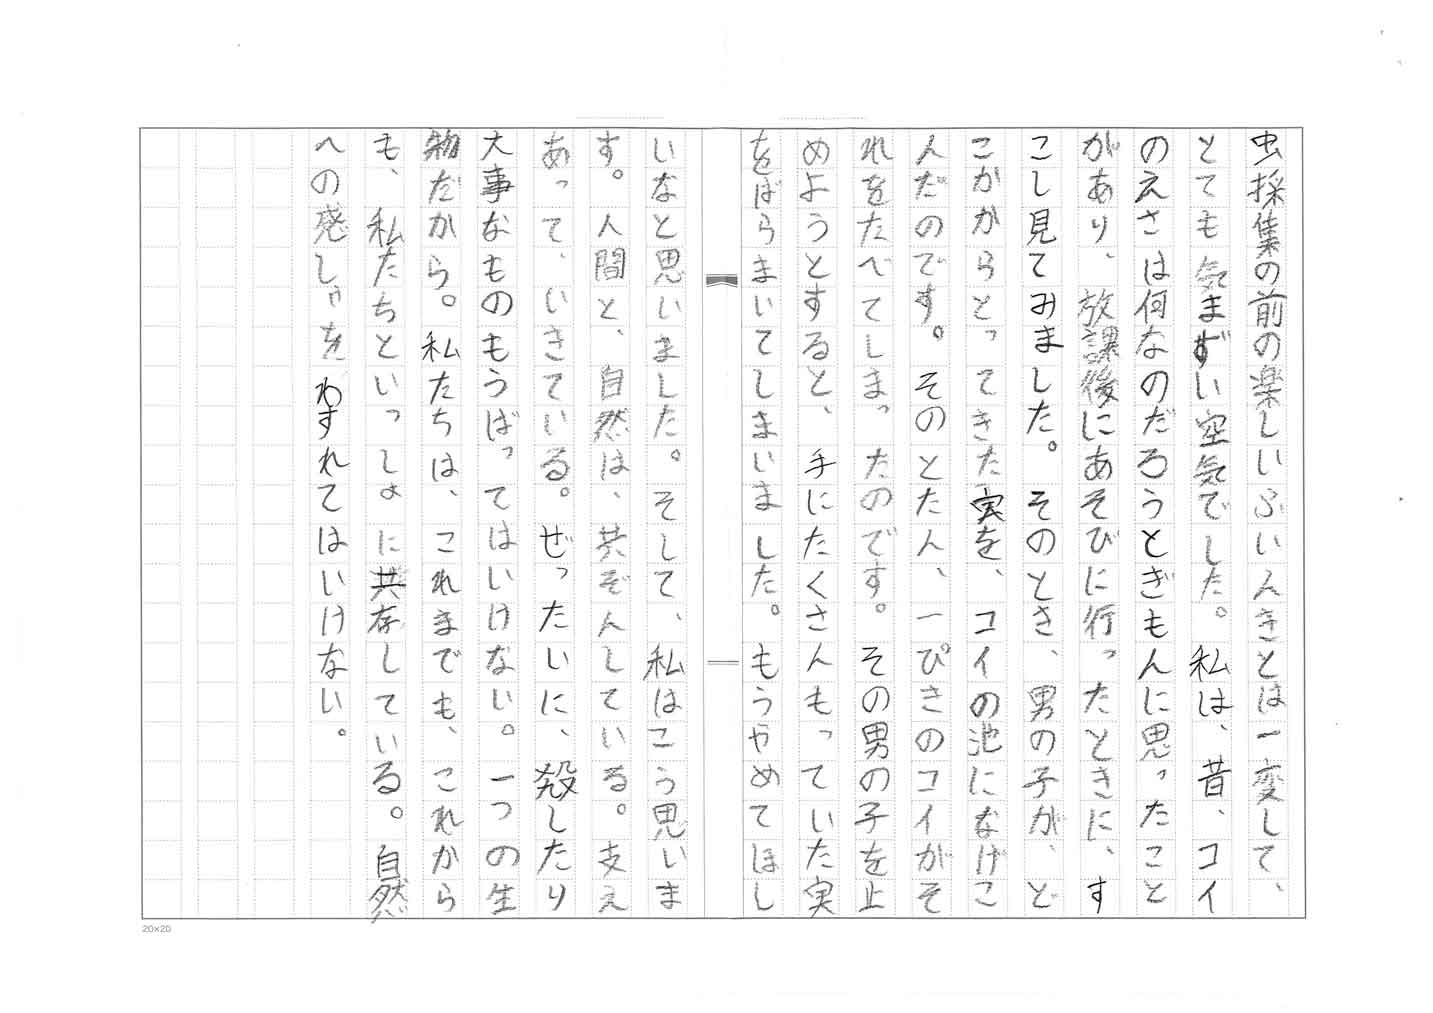 虫採集の前の楽しいふいんきとは一変して、
とても気まずい空気でした。私は、昔、コイ
のえさは何なのだろうとぎもんに思ったこと
があり、放課後にあそびに行ったときに、す
こし見てみました。そのとき、男の子が、ど
こかからとってきた実を、コイの池になげこ
んだのです。そのとたん、一ぴきのコイがそ
れをたべてしまったのです。その男の子を止
めようとすると、手にたくさんもっていた実
をばらまいてしまいました。もうやめてほし
いなと思いました。そして、私はこう思いま
す。人間と、自然は、共ぞんしている。支え
あって、いきている。ぜったいに、殺したり
大事なものもうばってはいけない。一つの生
物だから。私たちは、これまでも、これから
も、私たちといっしょに共存している。自然
への感しゃをわすれてはいけない。
20×20